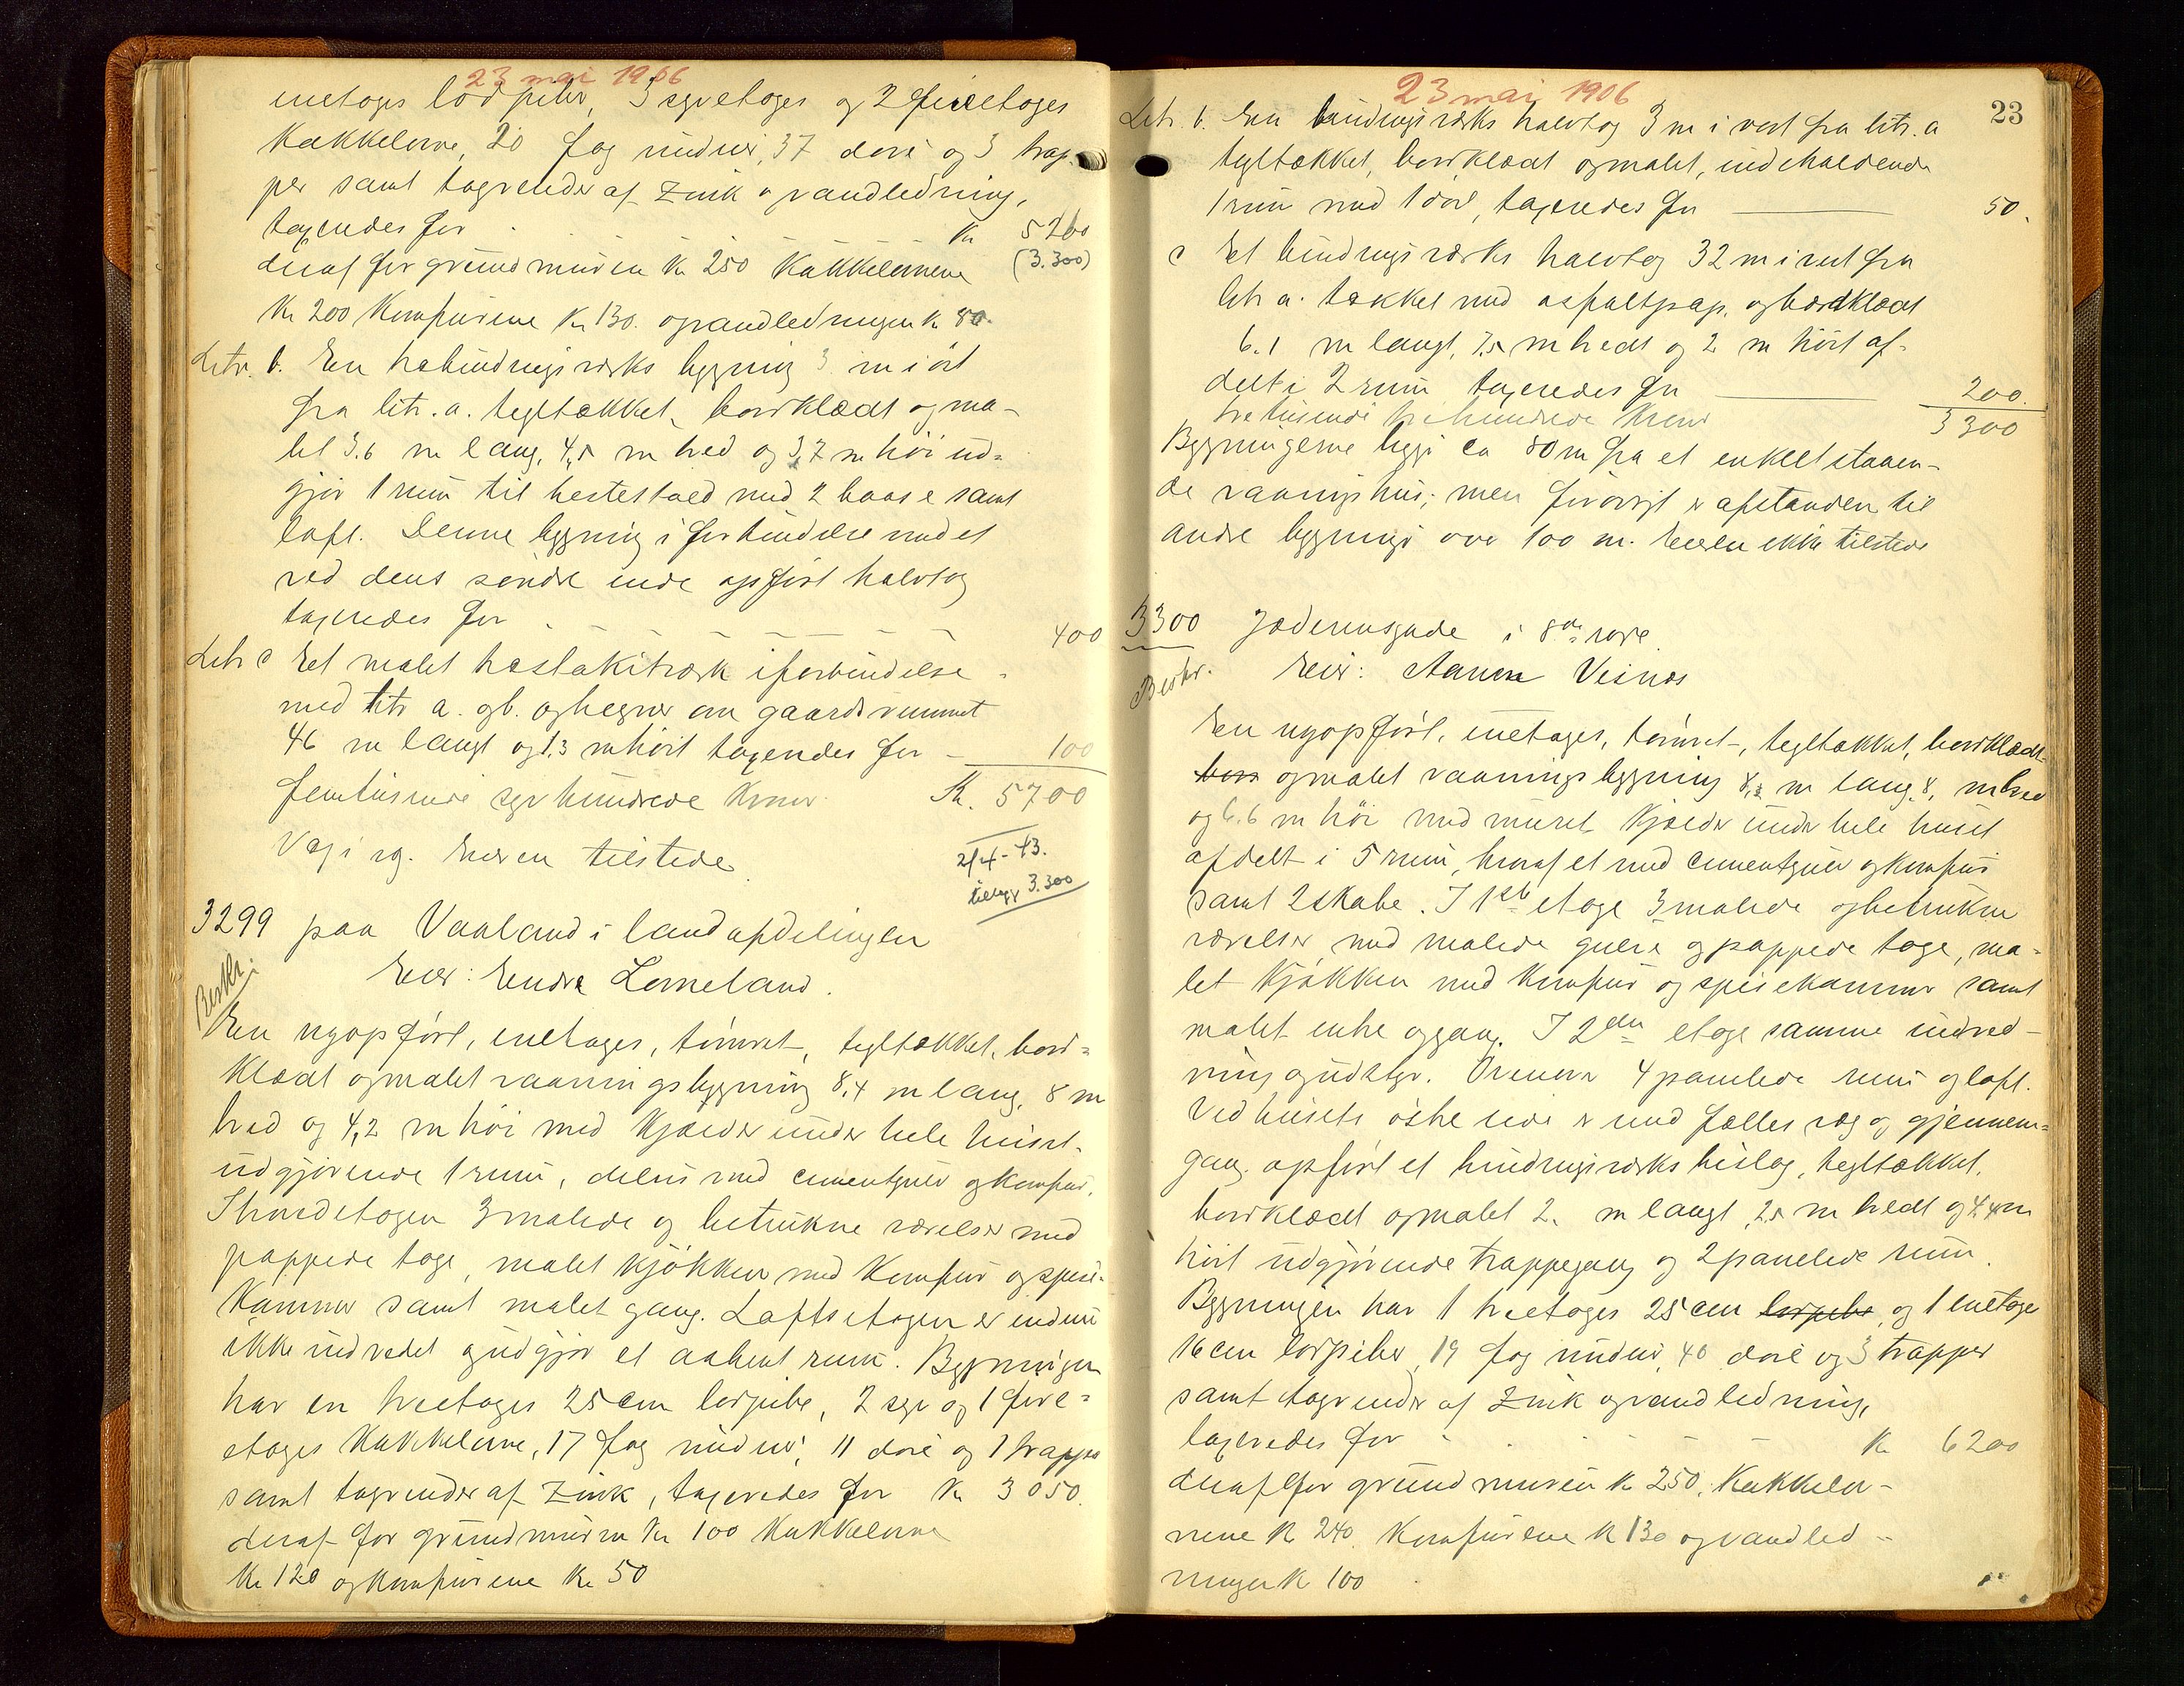 23 mai 1906
enetages lodpiber, 3 syvetages og 2 fireetages
Kakkelovne, 20 fag vinduer, 37 döre og 3 trap-
per samt tagrender af Zink og vandledning,
taxeredes for Kr 5200
deraf for grundmuren Kr 250 Kakkelovnene (3.300)
Kr 200 Komfurene Kr 130. og vandledningen Kr 80.
Litr. b. En bindingsværks bygning 3 m i öst
fra litr. a. tegltækket, bordklædt og ma-
let 5.6 m lang, 4,5 m bred og 3,7 m höi ud-
gjör 1 rum til hestestald med 2 baase samt
loft. Denne bygning i forbindelse med et
ved dens söndre ende opfört halvtag
taxeredes for 400
Litr c Et malet stakitværk i forbindelse
med litr a. og b. og hegner om gaardsrummet
46 m langt og 1,3 m höit taxeredes for 100
femtusinde syv hundrede Kroner Kr. 5700
Vagis sg. Eieren tilstede
2/4-43.
tillegg 3.300
3299 paa Vaaland i landafdelingen
Beskr.
Eier: Endre Lerneland.
En nyopfört, enetages, tömret, tegltækket, bord-
klædt og malet vaaningsbygning 8,4 m lang, 8 m
bred og 4,2 m höi med Kjælder under hele huset,
udgjörende 1 rum, delvis med cementgulv og Komfur.
I hovedetagen 3 malede og betrukne værelser med
pappede tage, malet Kjökken med Komfur og spise-
Kammer samt malet gang. Loftsetagen er endnu
ikke indredet og udgjör et aabent rum. Bygningen
har en treetages 25 cm lodpibe, 2 syv og 1 fire-
etages Kakkelovne, 17 fag vinduer, 11 döre og 1 trappe
samt tagrender af Zink, taxeredes for Kr 3050.
deraf for grundmuren Kr 100 Kakkelovne
Kr 120 og Komfurene Kr 50
23 mai 1906
23
Litr. b. En bindingsværks halvtag 3 m i vest fra litr. a
tegltækket, bordklædt og malet, indeholdende
1 rum med 1 dör, taxeredes for 50.
c Et bindingsværks halvtag 32 m i vest fra
litr a. tækket med asfaltpap, og bordklædt
6.1 m langt, 7,5 m bredt og 2 m höit af-
delt i 2 rum taxeredes for 200.
tretusinde trehundrede Kroner 3300
Bygningerne ligger ca 80 m fra et enkelt staaen-
de vaaningshus; men forövrigt er afstanden til
andre bygninger over 100 m. Eieren ikke tilstede
3300 Jæderensgade i 8de rode.
Beskr.
Eier: Aanen Veisnes
En nyopfört, enetages, tömret, tegltækket, bordklædt
og malet vaaningsbygning 8,3 m lang, 8, m bred
og 6.6 m höi med muret Kjælder under hele huset
afdelt i 5 rum, hvoraf et med cementgulv og Komfur
samt 2 skabe. I 1ste etage 3 malede og betrukne
værelser med malede gulve og pappede tage, ma-
let Kjökken med Komfur og spisekammer samt
malet entre og gang. I 2den etage samme indred-
ning og udstyr. Ovenover 4 panelede rum og loft.
Ved husets östre side er med fælles væg og gjennem-
gang opfört et bindingsværks bislag, tegltækket,
bordklædt og malet 2. m langt, 2,5 m bredt og 4,4 m
höit udgjörende trappegang og 2 panelede rum.
Bygningen har 1 treetages 25 cm lodpibe, og 1 enetage
16 cm lodpiber, 19 fag vinduer, 40 döre og 3 trapper
samt tagrender af Zink og vandledning,
taxeredes for Kr 6200
deraf for grundmuren Kr 250, Kakkelov-
nene Kr 240. Komfurene Kr 130 og vandled-
ningen Kr 100